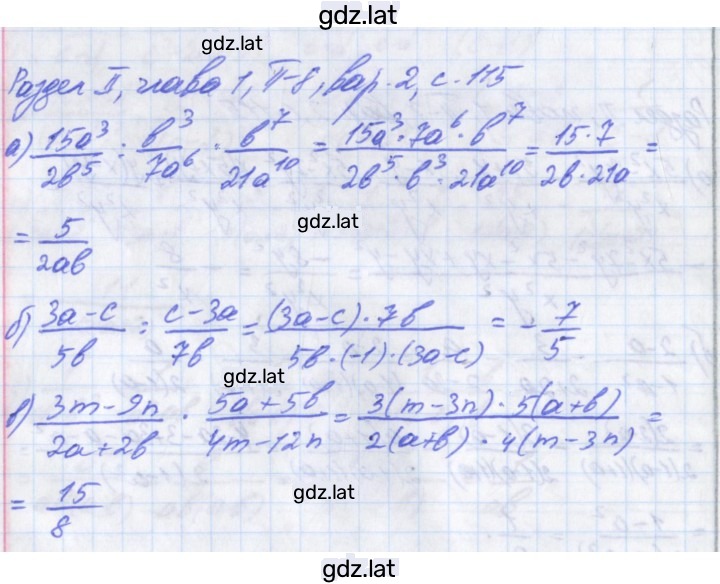 gdz.lat
gdz.lat
Раздел II, глава 1, П-8, вар. 2, с. 115
а) 15a³/2b⁵ : b³/7a⁶ · b⁷/21a¹⁰ = 15a³·7a⁶·b⁷/2b⁵·b³·21a¹⁰ = 15·7/2b·21a =
gdz.lat
= 5/2ab
б) 3a-c/5b : c-3a/7b = (3a-c)·7b/5b·(-1)·(3a-c) = -7/5
gdz.lat
в) 3m-9n/2a+2b · 5a+5b/4m-12n = 3(m-3n)·5(a+b)/2(a+b)·4(m-3n) =
= 15/8
gdz.lat
gdz.lat